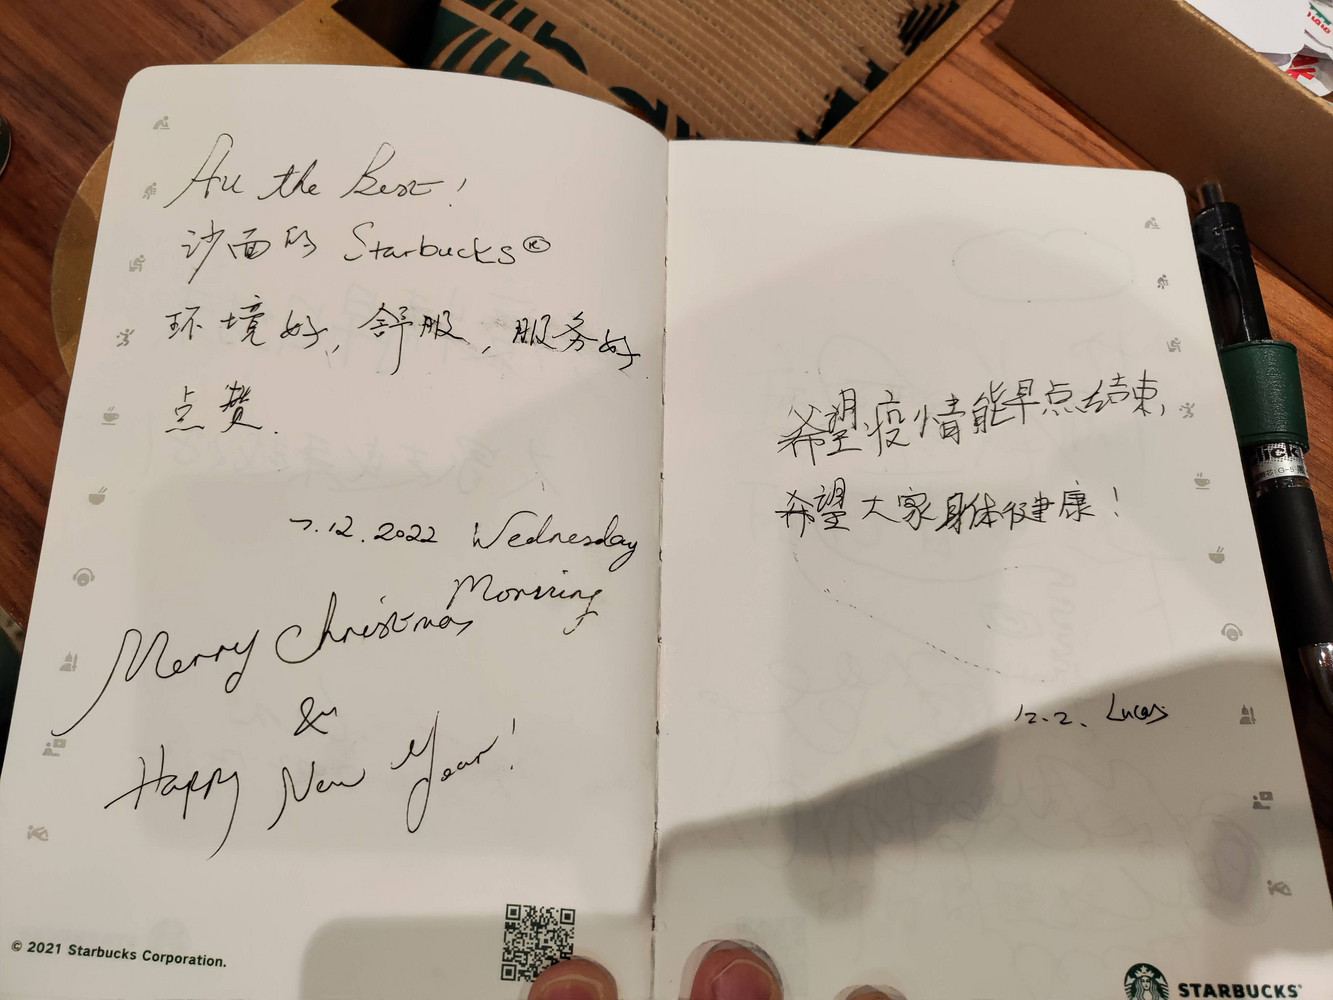 All the Best!
沙面的 Starbucks®
环境好, 舒服, 服务好
点赞.
7.12.2022 Wednesday
Morning
Merry Christmas
&
Happy New Year!
© 2021 Starbucks Corporation.
希望疫情能早点结束,
希望大家身体健康!
12.2. Lucas
STARBUCKS®